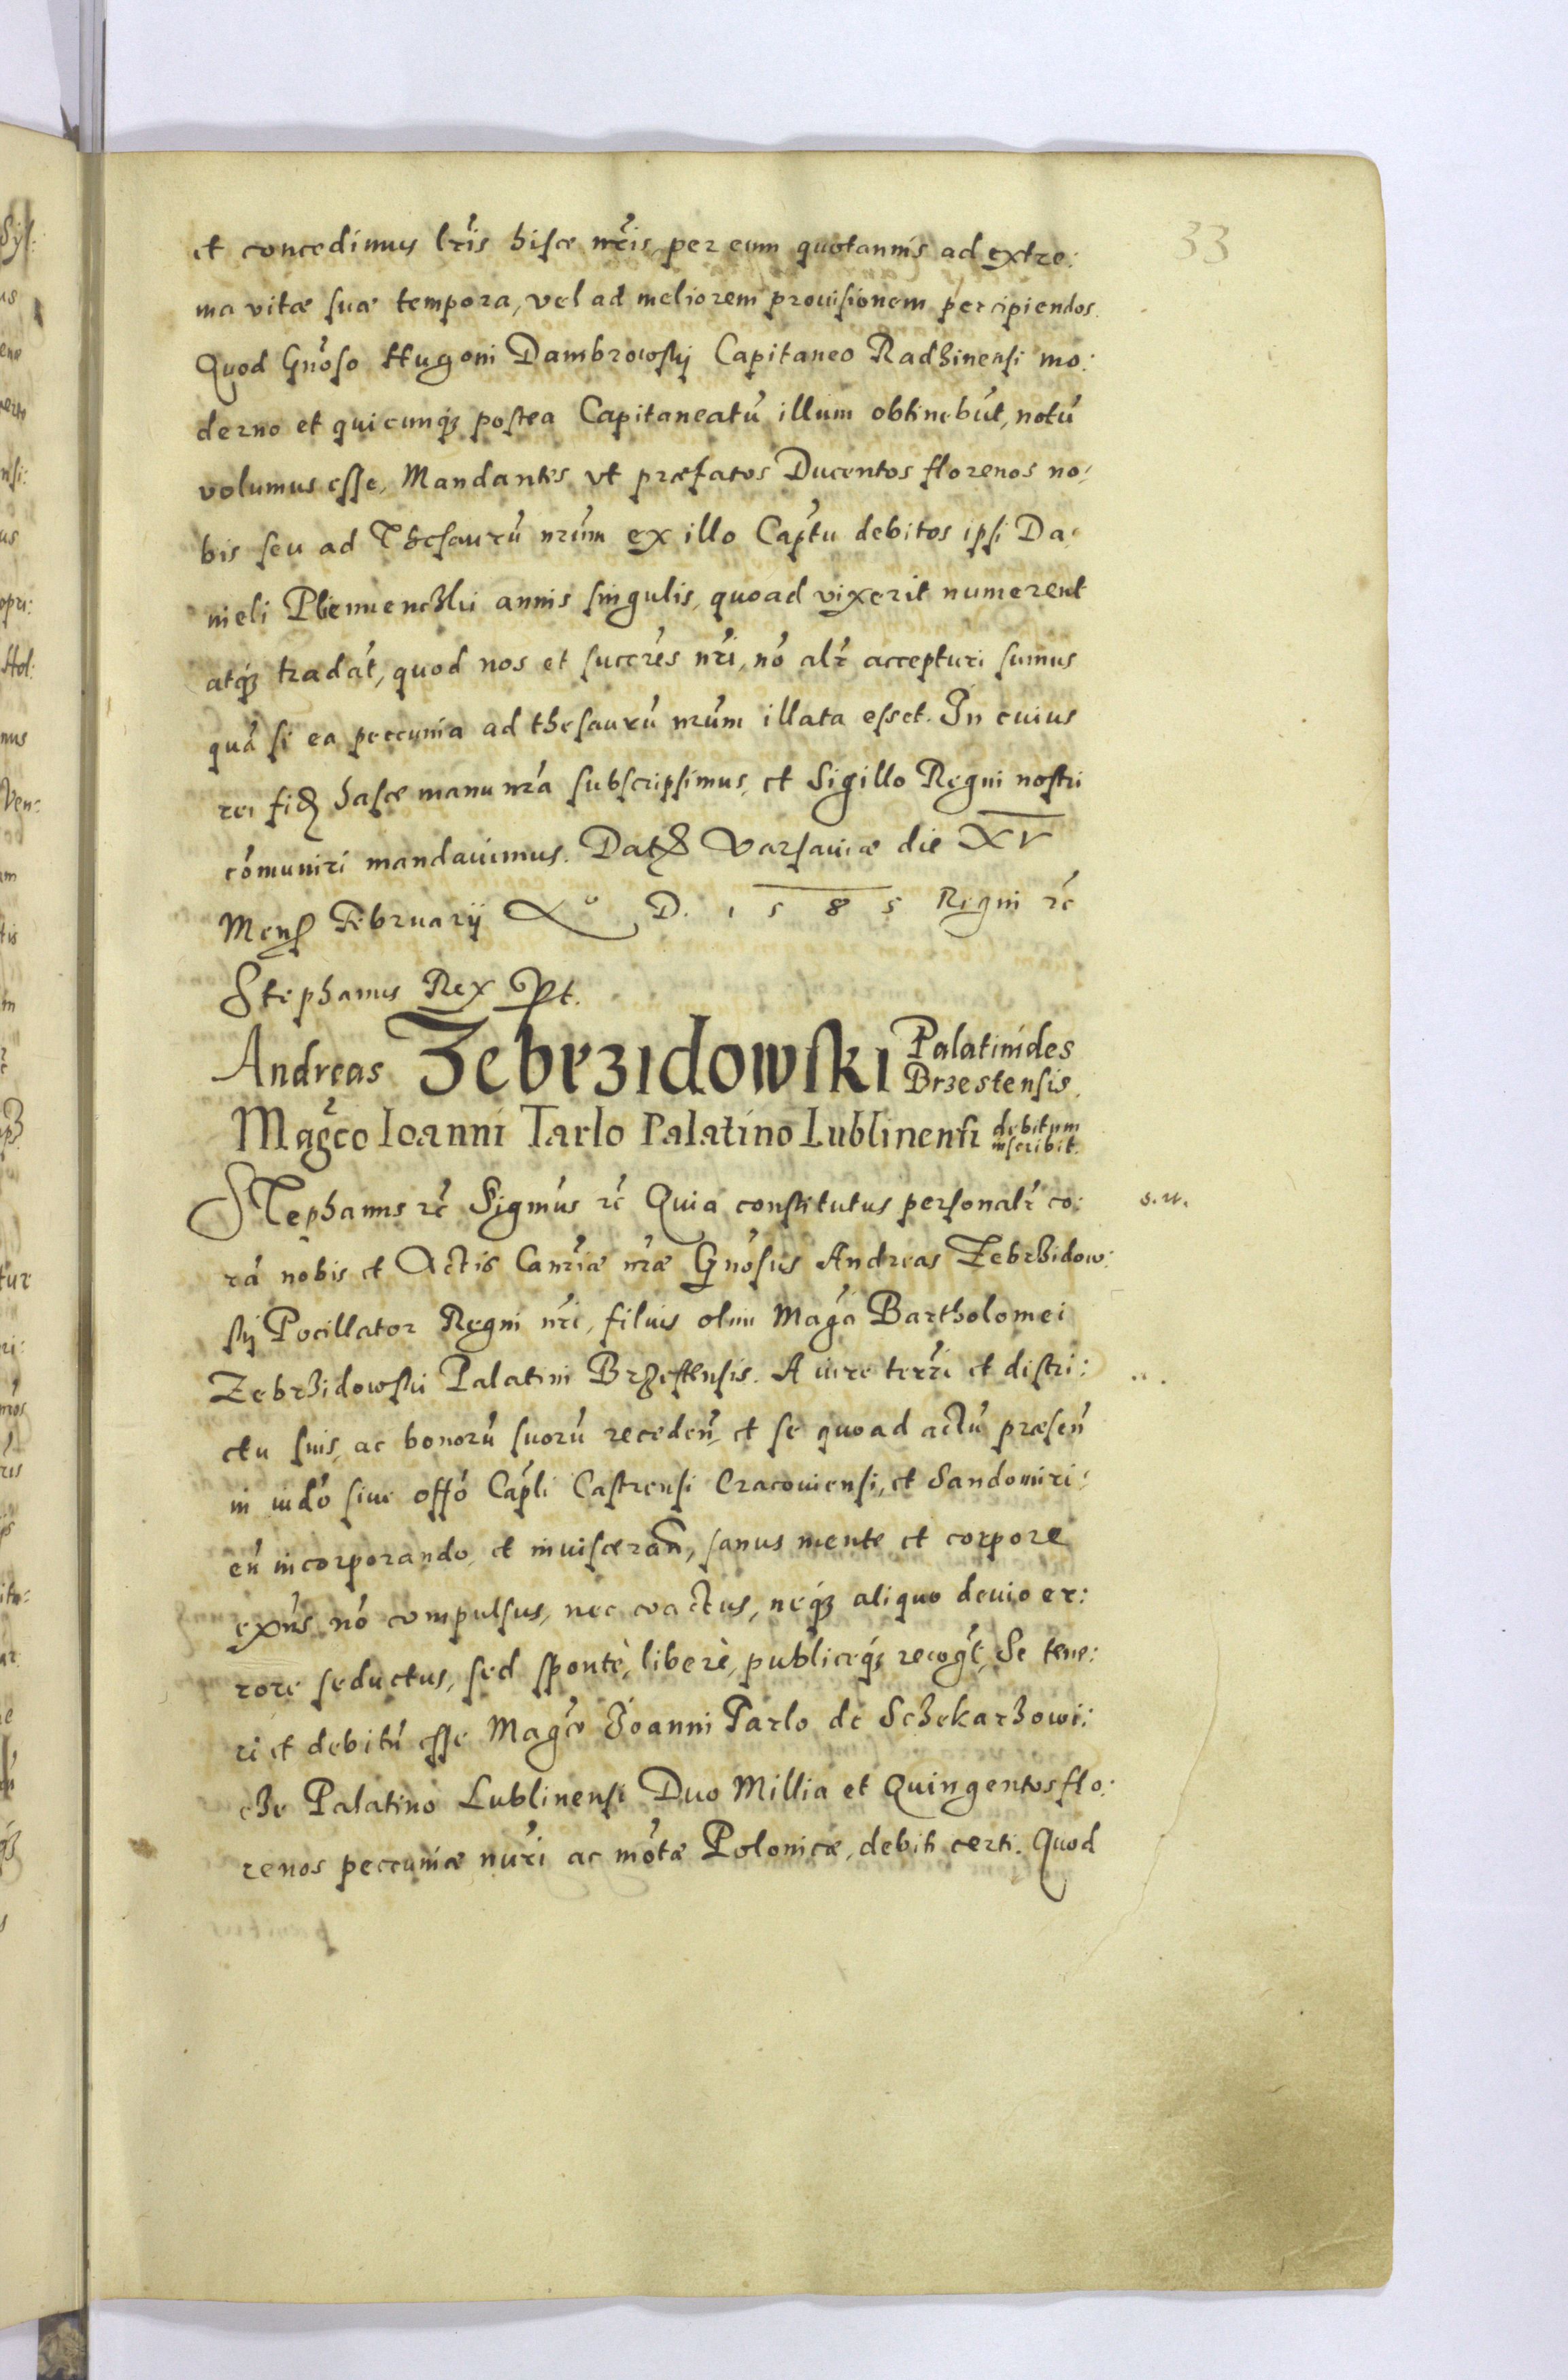 33
et concedimus lr̃is hisce nr̃is, per eum quotannis ad extre:
ma vitæ suæ tempora, vel ad meliorem prouisionem percipiendos.
Quod Gñoso Hugoni Dambrowskj Capitaneo Radzinensi mo:
derno et quicunq3 postea Capitaneatũ illum obtinebũt, notũ
volumus esse, Mandantes vt præfatos Ducentos florenos no:
bis seu ad Thesaurũ nr̃um ex illo Capt̃u debitos ipsi Da:
nieli annis singulis, quoad vixerit numerent
atq3 tradãt, quod nos et succr̃es nr̃i, nõ alr̃ accepturi sumus
quã si ea peccunia ad thesaurũ nr̃um illata esset. In cuius
rei fid. hasce manu nr̃a subscripsimus, et Sigillo Regni nostri
cõmuniri mandauimus. Dat. Varsauiæ die XV
Mens. Februarij Aº D. 1585 Regni rc̃
Stephanus Rex P̱t.
Andreas Zebrzidowski Palatinides
Brzestensis.
Magc̃o Ioanni Tarlo Palatino Lublinensi debitum
inscribit.
STephanus rc̃ Sigm̃us rc̃ Quia constitutus personalr̃ co: s. n.
rã nobis et Actis Canr̃iæ nr̃æ Gñosus Andreas Zebrzidow:
skj Pocillator Regni nr̃i, filius olim Magc̃i Bartholomei
Zebrzidowski Palatini Brzestensis. A iure terr̃i et distri:
ctu suis, ac bonorũ suorũ recedeñ, et se quoad actũ præseñ
in iudõ siue offõ Capl̃i Castrensi Cracouiensi, et Sandomiri:
eñ incorporando, et inuiscerañ, sanus mente et corpore
exñs nõ compulsus, nec coactus, neq3 aliquo deuio er:
rore seductus, sed spontè, liberè, publiceq3 recogt̃, Se tene:
ri et debitũ esse Magc̃o Joanni Tarlo de Sczekarzowi:
cze Palatino Lublinensi Duo Millia et Quingentos flo:
renos peccuniæ nũri ac mõtæ Polonicæ, debiti certi. Quod